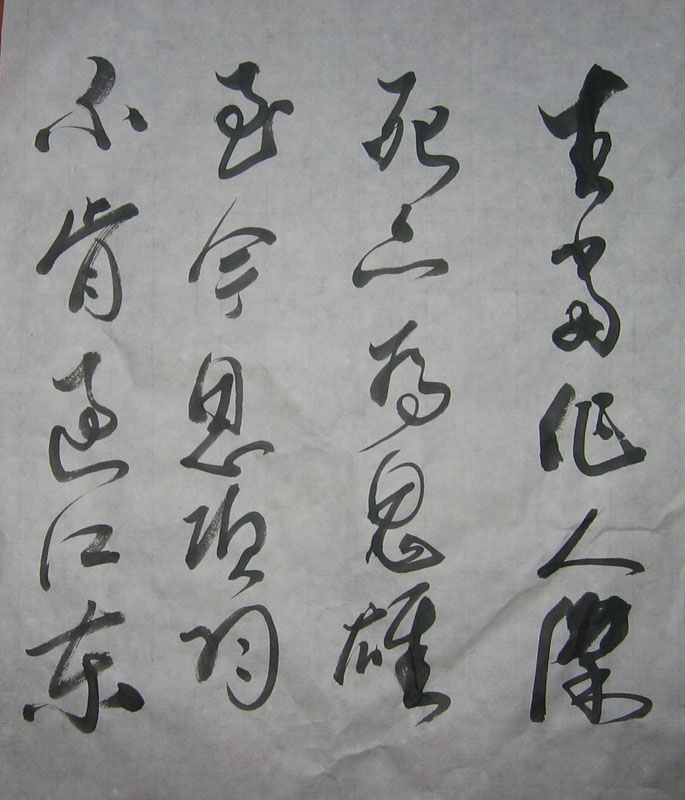 生當作人傑
死亦为鬼雄
至今思项羽
不肯過江东